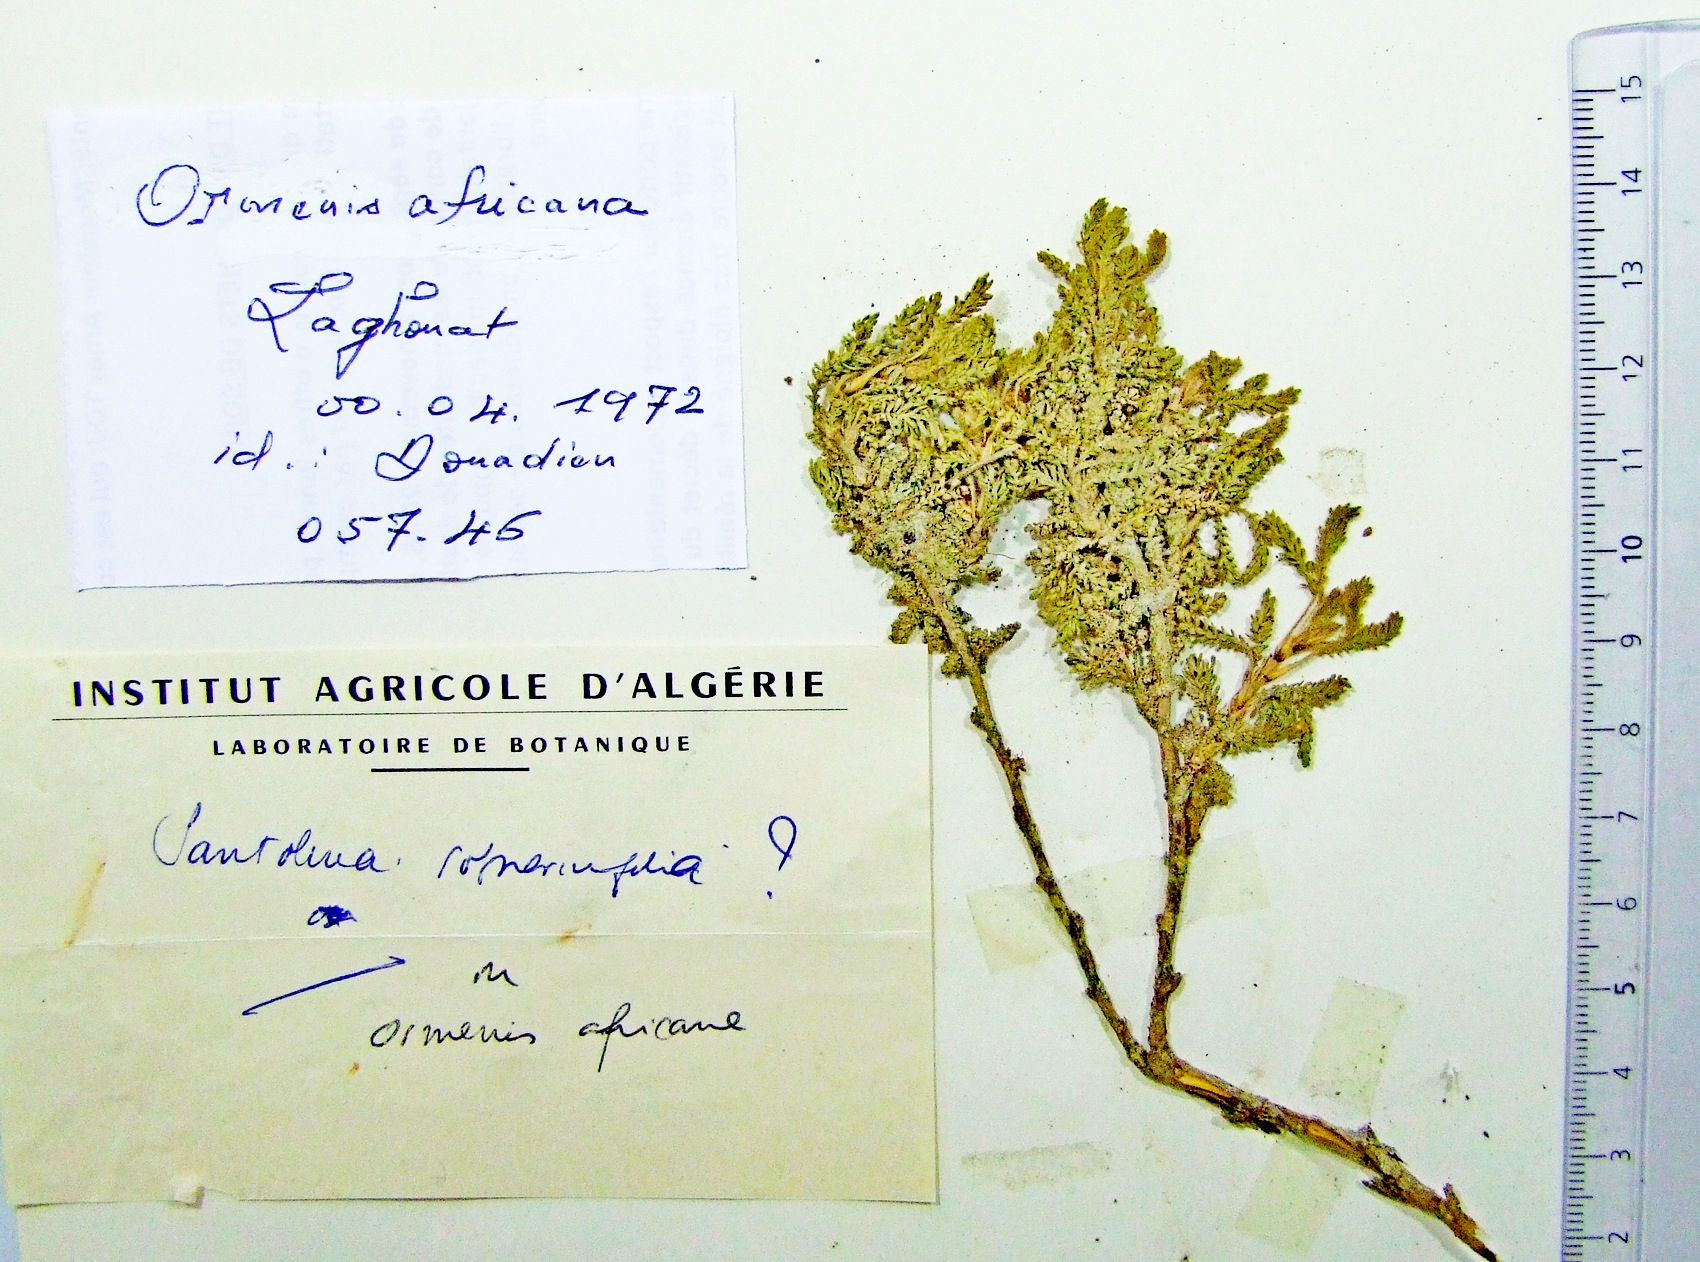 Ormenis africana
Laghouat
00.04.1972
id.: Donadieu
057.46
INSTITUT AGRICOLE D'ALGÉRIE
LABORATOIRE DE BOTANIQUE
Santolina ?
Ormenis africana
15
14
13
12
11
10
9
8
7
6
5
4
3
2